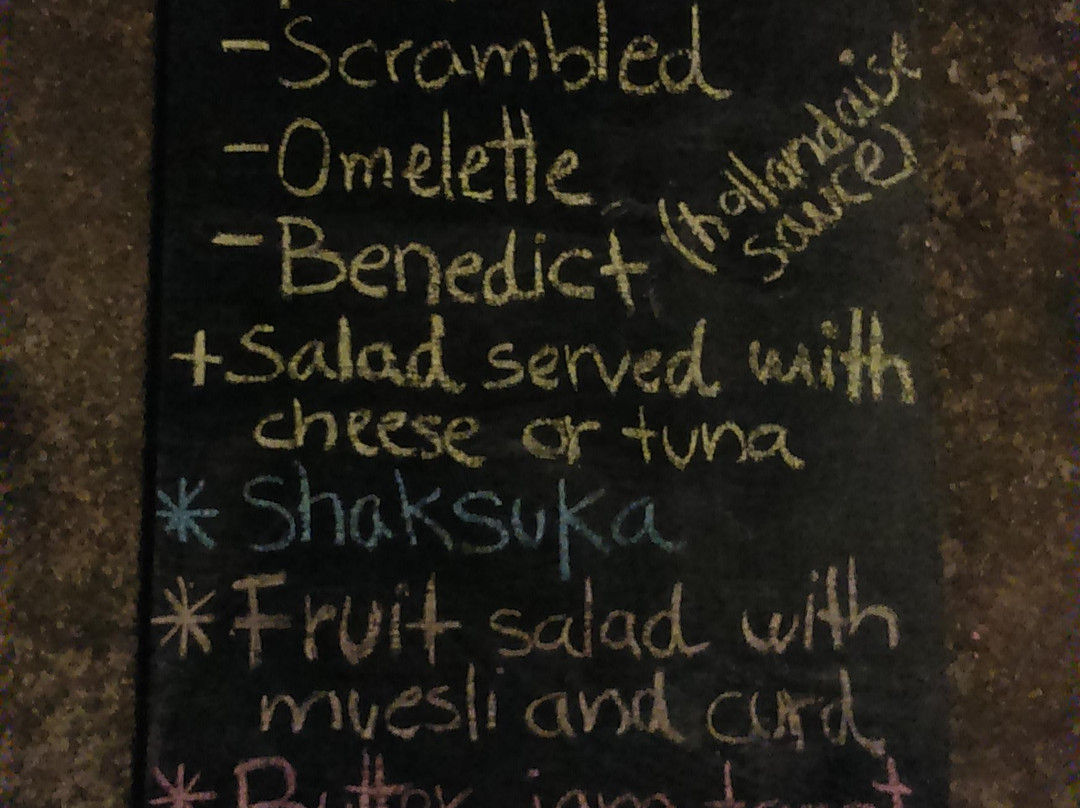 -Scrambled
-Omelette
-Benedict (hollandaise
sauce)
+Salad served with
cheese or tuna
*Shaksuka
*Fruit salad with
muesli and curd
*Butter jam toast